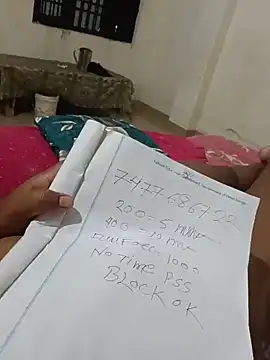 7477-686722
200 = 5 minute
400 = 10 m
Full Face 1000
No Time Pss
Block ok